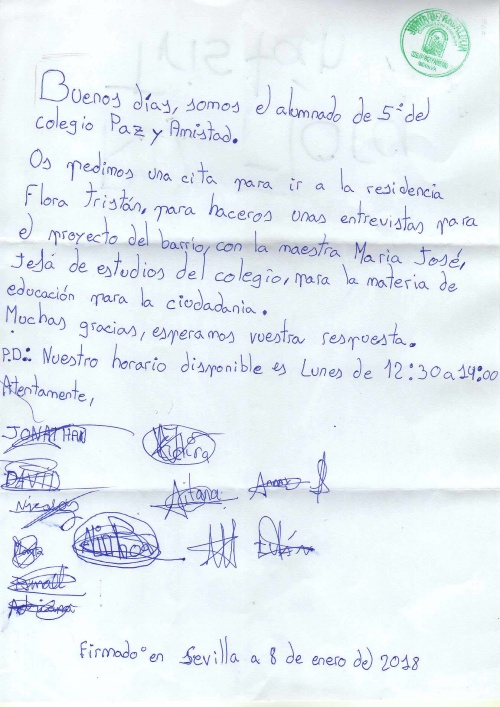 JUNTA DE ANDALUCÍA
Buenos días, somos el alumnado de 5º del
colegio Paz y Amistad.
Os pedimos una cita para ir a la residencia
Flora Tristán, para haceros unas entrevistas para
el proyecto del barrio, con la maestra Maria José,
Jefá de estudios del colegio, para la materia de
educación para la ciudadania.
Muchas gracias, esperamos vuestra respuesta.
P.D.: Nuestro horario disponible es Lunes de 12:30 a 14:00
Atentamente,
JONATHAN
DAVID
Aitana
Nicolas
Ainhoa
Ismael
Adriana
Firmado en Sevilla a 8 de enero del 2018